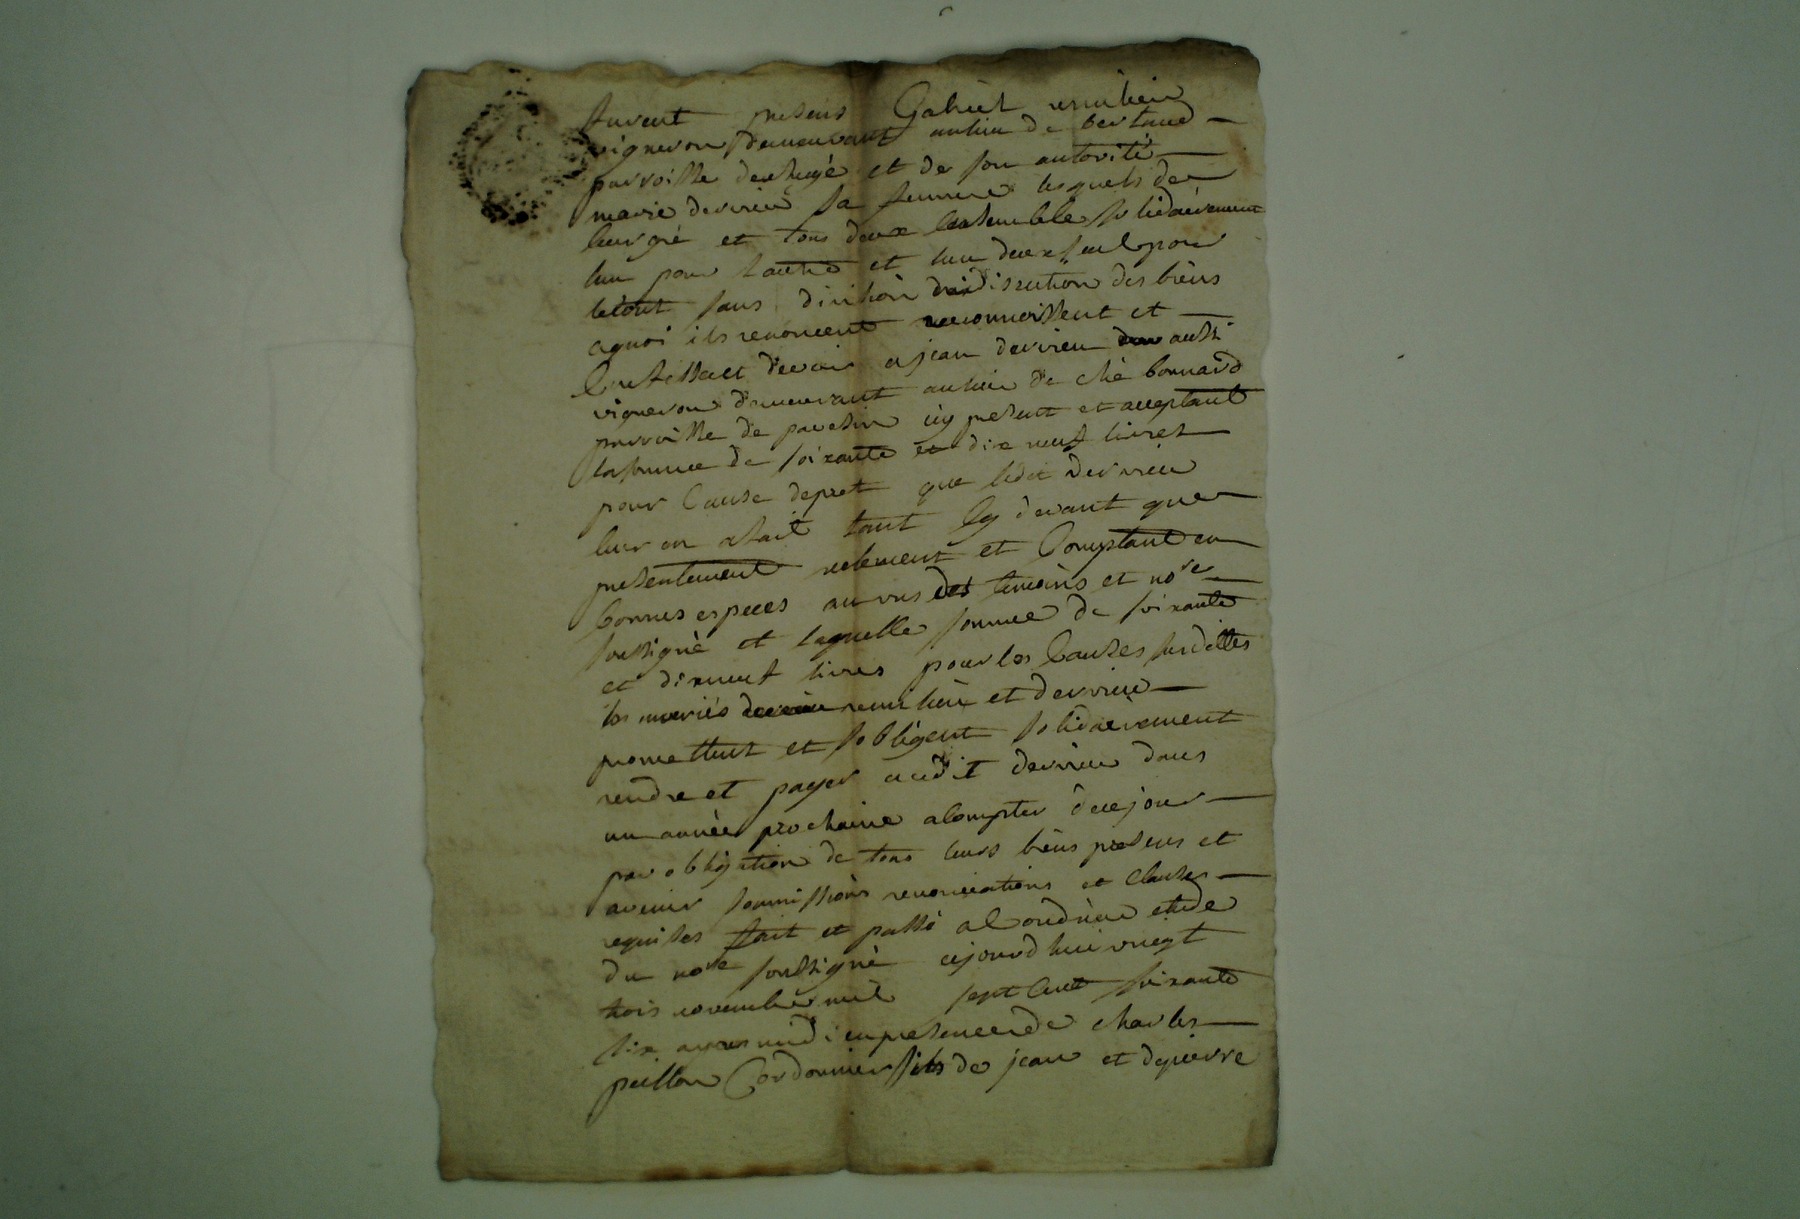 furent presens Gabriel
vigneron demeurant au lieu de bertaud
parroisse de et de son autorité
marie dervieu sa femme lesquels de
leur gré et tous deux ensemble solidairement
lun pour lautre et lun deux seul pour
letout sans division discution des biens
aquoi ils renoncent reconnoissent et
confessent devoir a jean dervieu aussi
vigneron demeurant au lieu de ché bonnard
parroisse de pavezin icy present et acceptant
la somme de soixante et dix neuf livres
pour cause depret que ledit dervieu
leur en afait tant cy devant que
presentement reelement et comptant en
bonnes especes au vus des temoins et nore
soussigné et laquelle somme de soixante
et dixneuf livres pour les causes susdittes
les mariés et dervieu
promettent et sobligent solidairement
rendre et payer audit dervieu dans
un année prochaine acompter de ce jour
par obligation de tous leurs biens presens et
avenir soumissions renonciations et clauses
requises fait et passé a Condrieu etude
du nore soussigné cejourdhui vingt
trois novembre mil sept cent soixante
six apres midi en presence de charles
peillon Cordonnier fils de jean et de pierre